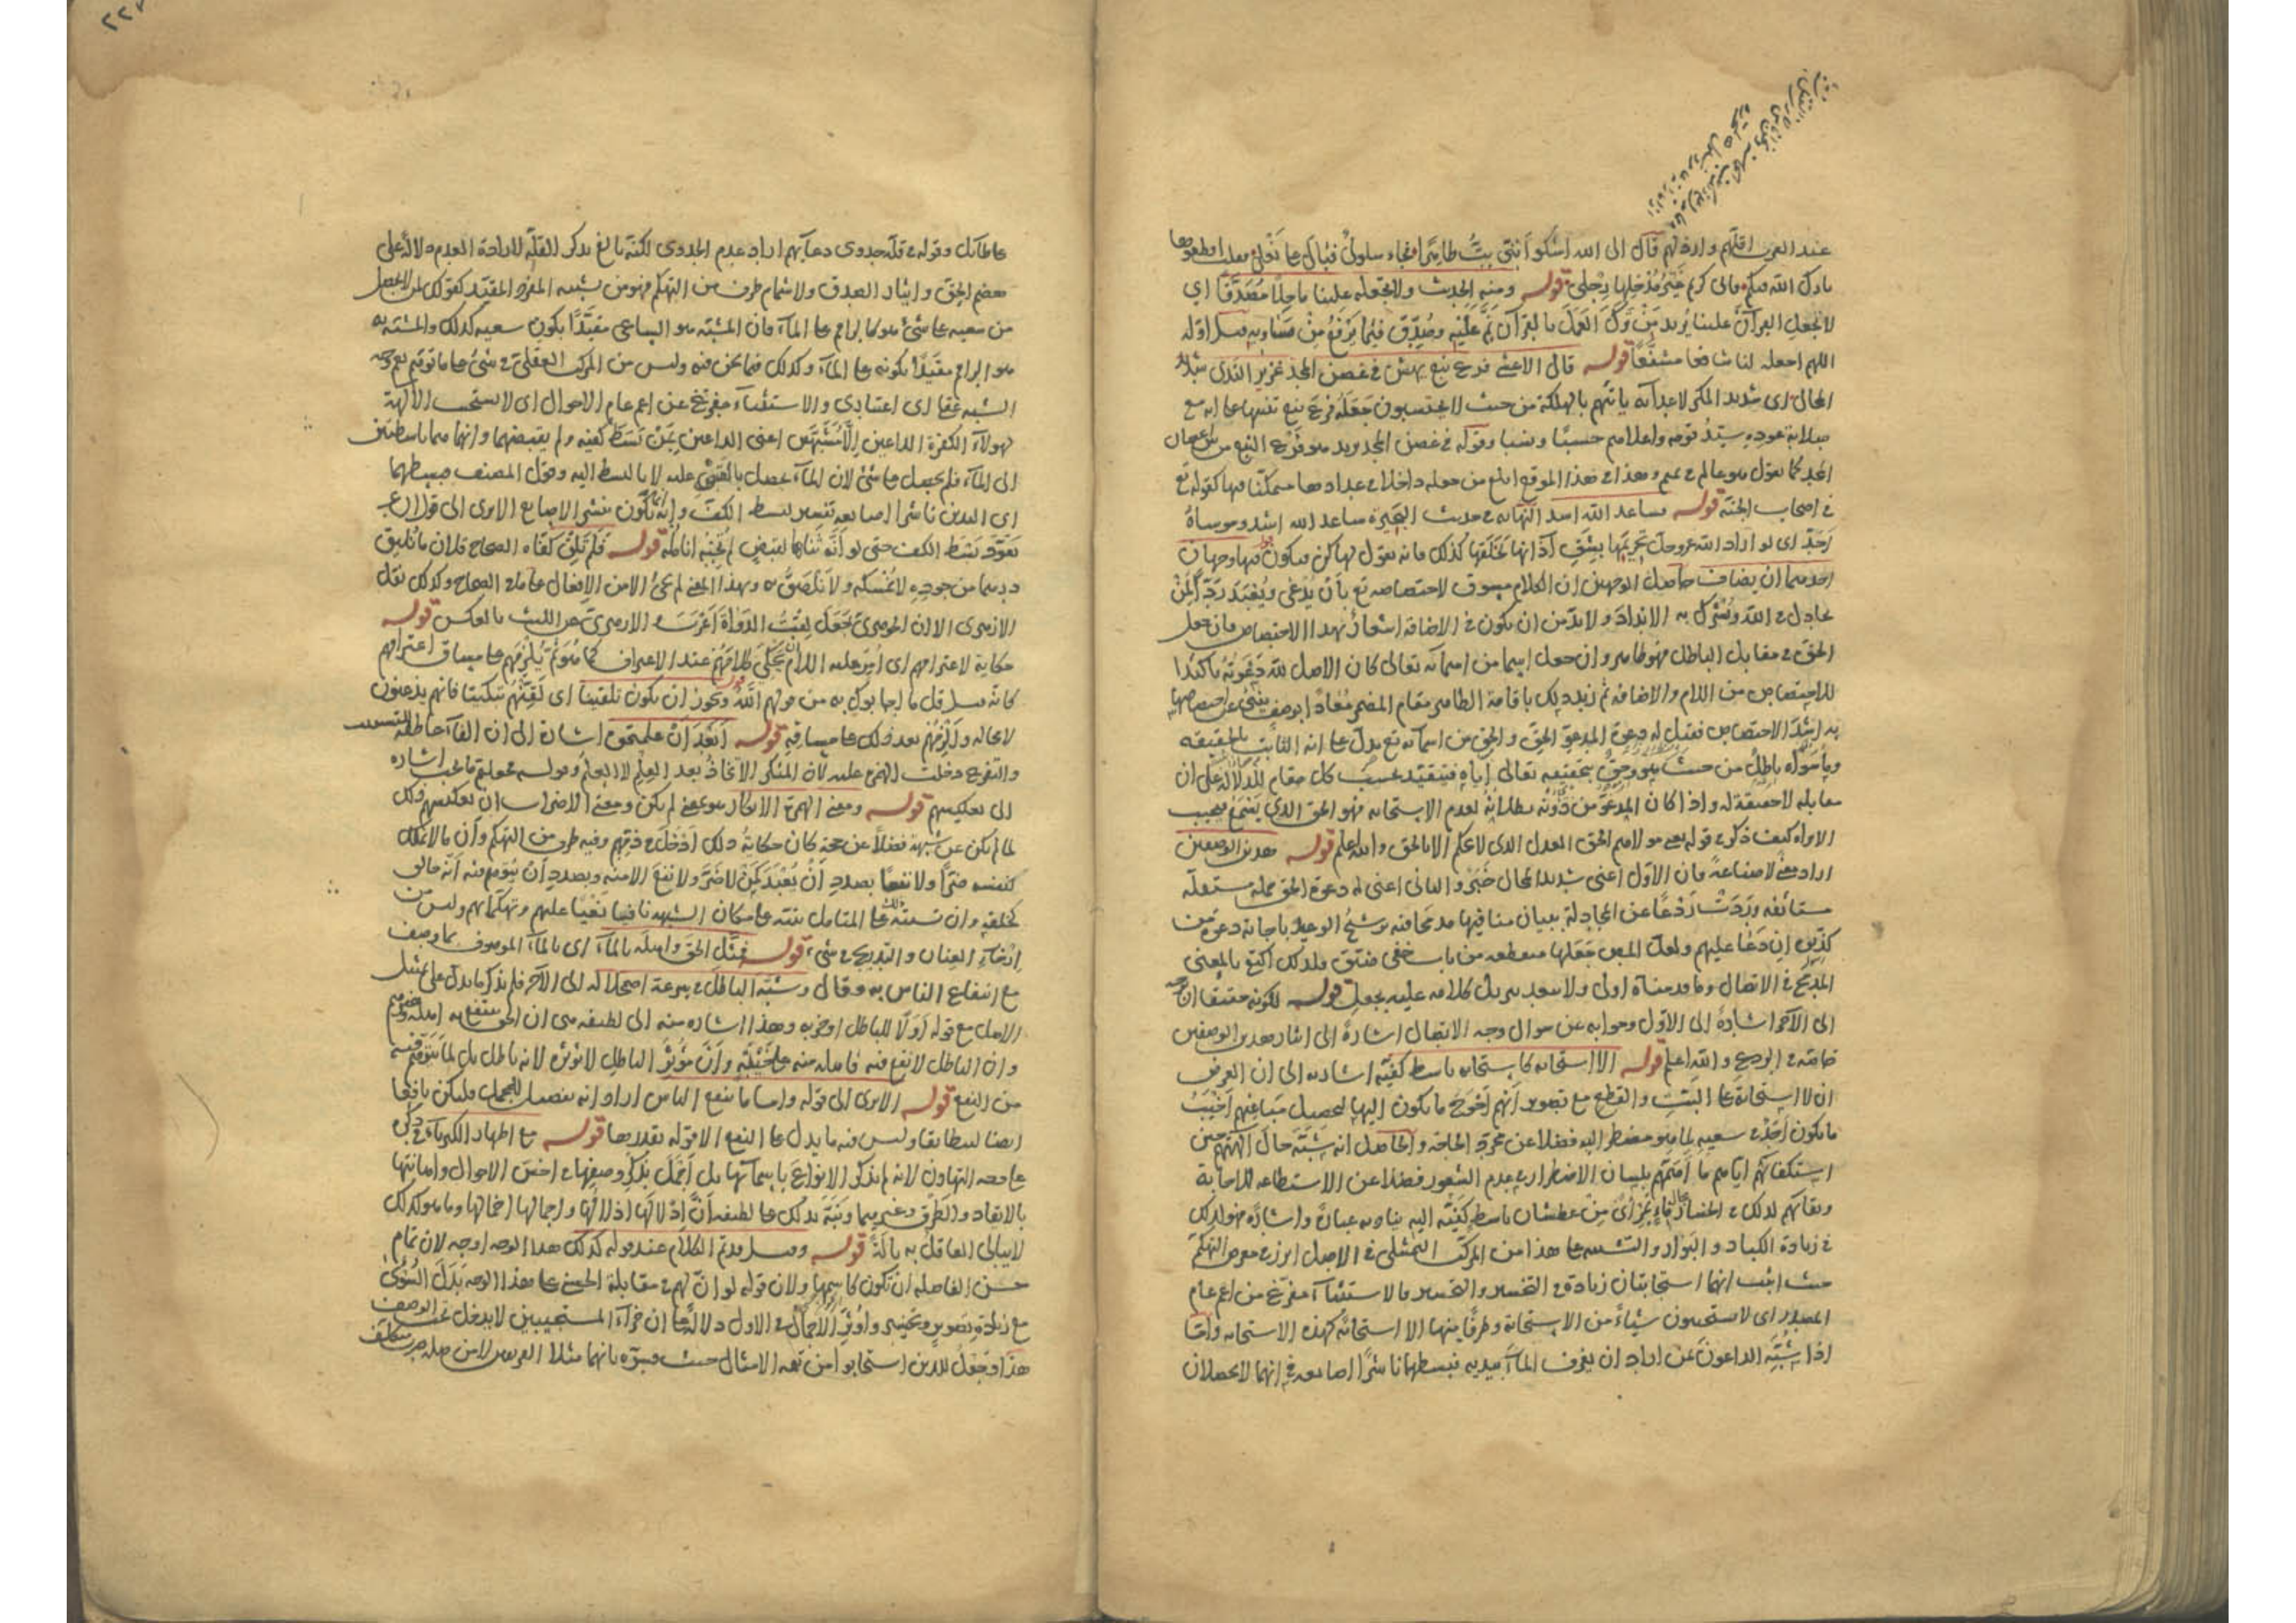 عند العرب اقلهم واذلهم قال الى الله اشكو اننى بت طاهرا فجاء سلولى فبال على نعلى فقلت اقطعوها
بارك الله فيكم فانى كريم غير مدخلها رجلى قوله ومنه الحديث ولا تجعله علينا ماحلا مصدقا اى
لا تجعل القرآن علينا يريد من ترك العمل بالقرآن نم عليه وصدق فيما يرفع من مساويه قبل اوله
اللهم اجعله لنا شافعا مشفعا قوله قال الاعشى فرع نبع يهش فى غصن المجد غزير الندى شديد
المحال اى شديد المكر لاعدائه يأتيهم بالهلكة من حيث لا يحتسبون جعله فرع نبع تنبيها على انه مع
صلابة عوده سيد قومه واعلاهم حسبا ونسبا وقوله فى غصن المجد يريد هو فرع النبع من اغصان
المجد كما تقول هو عالم فى تميم وهذا فى هذا الموقع ابلغ من جعله داخلا فى عدادها متمكنا فيها كقوله تع
فى اصحاب الجنة قوله فساعد الله اسد النهاية فى حديث البحيرة ساعد الله اشد وموساه
احد اى لو اراد الله عز وجل تحريمها بشق آذانها لخلقها كذلك فانه يقول لها كن فيكون قوله فيها وجهان
احدهما ان يضاف حاصل الوجهين ان الكلام مسوق لاختصاصه تع بان يدعى ويعبد ردا لمن
يجادل فى الله ويشرك به الانداد ولا بد من ان يكون فى الاضافة اشعار بهذا الاختصاص فان جعل
الحق فى مقابل الباطل فهو ظاهر وان جعل اسما من اسمائه تعالى كان الاصل لله دعوته تاكيدا
للاختصاص من اللام والاضافة ثم زيد ذلك باقامة الظاهر مقام المضمر معادا بوصف ينبئ عن اختصاصها
به اشد الاختصاص فقيل له دعوة المدعو الحق والحق من اسمائه تع يدل على انه الثابت بالحقيقة
وما سواه باطل من حيث هو وحق بتحقيقه تعالى اياه فيتقيد بحسب كل مقام للدلالة على ان
مقابله لا حقيقة له واذا كان المدعو من دونه بطلانه لعدم الاستجابة فهو الحق الذى يسمع فيجيب
الا تراه كيف ذكر فى قوله تعالى هو مولاهم الحق العدل الذى لا يحكم الا بالحق والله اعلم قوله هذين الوصفين
اراد معنى لا صناعة فان الاول اعنى شديد المحال خبر والثانى اعنى له دعوة الحق جملة مستقلة
مستأنفة وردت ردعا عن المجادلة ببيان منافيها مدمجا فيه ترشيح الوعيد باجابة دعوة من
كذبوه ان دعا عليهم ولعل البعض جعلها منقطعة من باب خفى ضيق فلذلك اكتفى بالمعنى
المدمج فى الاتصال وما قدمناه اولى ولا يبعد تنزيل كلامه عليه بجعل قوله لكونه حقيقا ان
الى الآخر اشارة الى الاول وجوابه عن سؤال وجه الاتصال اشارة الى ايثار هذين الوصفين
خاصة فى الردع والله اعلم قوله الا استجابة كاستجابة باسط كفيه اشارة الى ان الغرض
ان لا استجابة على البت والقطع مع تصوير انهم احوج ما يكون اليها لتحصيل مباغيهم اخيب
ما يكون احد فى سعيه لما هو مضطر اليه فضلا عن مجرد الحاجة والحاصل انه شبه حال آلهتهم حين
استكفائهم اياهم ما اهمهم بلسان الاضطرار فى عدم الشعور فضلا عن الاستطاعة للاجابة
وبقائهم لذلك فى الخسار بحال ماء بمرأى من عطشان باسط كفيه اليه يناديه عبارة واشارة فهو لذلك
فى زيادة الكباد والبوار والتشبيه على هذا من المركب التمثيلى فى الاصل ابرز فى معرض التهكم
حيث اثبت انهما استجابتان زيادة فى التخسير والتحسير فالاستثناء مفرغ من اعم عام
المصدر اى لا يستجيبون شيئا من الاستجابة وطرفا منها الا استجابة كهذه الاستجابة واما
اذا شبه الداعون بمن اراد ان يغرف الماء بيديه فبسطهما ناشرا اصابعه فى انهما لا يحصلان
على طائل وقوله فى قلة جدوى دعائهم اراد عدم الجدوى لكنه بالغ بذكر القلة لارادة العدم دلالة على
هضم الحق وايثار الصدق ولاشمام طرف من التهكم فهو من تشبيه المفرد المقيد كقولك لمن لا يحصل
من سعيه على شئ هو كالراقم على الماء فان المشبه هو الساعى مقيدا بكون سعيه كذلك والمشبه به
هو الراقم مقيدا بكونه على الماء وكذلك فيما نحن فيه وليس من المركب العقلى فى شئ على ما توهم نعم وجه
الشبه عقلى اعتبارى والاستثناء مفرغ عن اعم عام الاحوال اى لا يستجيب الآلهة
لهؤلاء الكفرة الداعين الا مشبهين اعنى الداعين بمن بسط كفيه ولم يقبضهما وانهما هما باسطتين
الى الماء فلم يحصل على شئ لان الماء يحصل بالقبض عليه لا بالبسط اليه وقول المصنف فبسطهما
اى اليدين ناشرا اصابعه تفسير لبسط الكف وانه انما يكون بنشر الاصابع الا ترى الى قوله
تعود بسط الكف حتى لو انه ثناها لقبض لم تجبه انامله قوله فلم تلق كفاه الصحاح فلان ما تليق
درهما من جوده لا تمسكه ولا تلصق به وبهذا المعنى لم يجئ الا من الافعال على ما فى الصحاح وكذلك نقل
الازهرى الا ان الجوهرى جعل لقت الدواة اغرب والازهرى عن الليث بالعكس قوله
حكاية لاعترافهم اى امر عليه السلام بان يحكى كلامهم عند الاعتراف كما هو ثم يلزمهم على مساق اعترافهم
كانه قيل قل ما اجابوك به من قولهم الله قوله ويجوز ان يكون تلقينا اى لقنهم تبكيتا فانهم يذعنون
لا محالة والزمهم بعد ذلك على مساقه قوله ابعد ان علمتموه اشارة الى ان الفاء عاطفة للتسبب
والتفريع دخلت الهمزة عليه لان المنكر الاتخاذ بعد العلم لا العلم وقوله فجعلتم ما يجب اشارة
الى تعكيسهم قوله ومعنى الهمزة الانكار هو بمعنى لم يكن ومعنى الاضراب ان تعكيسهم ذلك
لما لم يكن عن شبهة فضلا عن حجة كان حكاية ذلك ادخل فى ذمهم وفيه طرف من التهكم وان ما لا يملك
لنفسه ضرا ولا نفعا بصدد ان يعبد كمن لا ضر ولا نفع الا منه وبصدد ان يتوهم فيه انه خالق
كخلقه وان تنبه له المتأمل بنية على مكان الشبهة نافيا نعيا عليهم وتهكما بهم وليس من
ارخاء العنان والتدريج فى شئ قوله فمثل الحق واهله بالماء اى بالماء الموصوف بما وصف
مع انتفاع الناس به وقال وشبه الباطل فى سرعة اضمحلاله الى الآخر فلم يذكر ما يدل على تمثيل
الاهل مع قوله اولا للباطل وحزبه وهذا اشارة منه الى لطيفة هى ان الحق ينتفع به اهله وغيرهم
وان الباطل لا نفع فيه فاهله منه على خيبة وان مؤثر الباطل لا تؤثره لانه باطل بل لما يتوهم فيه
من النفع قوله الا ترى الى قوله واما ما ينفع الناس اراد انه تفصيل للجمل فليكن نافعا
ايضا ليتطابقا وليس فيه ما يدل على النفع الا قوله بقدرها قوله مع اظهار الكبرياء فى ذكره
على وجه التهاون لانه لم يذكر الانواع باسمائها بل اجمل بذكر وصفها فى اخس الاحوال واهانتها
بالايقاد والطرق وغيرهما ونبه بذلك على لطيفة ان اذلالها اذلالها واجمالها اخمالها وما هو كذلك
لا يبالى العاقل به بالة قوله وقيل قد تم الكلام عند قوله كذلك هذا الوجه اوجه لان تمام
حسن الفاصلة ان تكون كاسمها ولان قوله لو ان لهم فى مقابلة الحسنى على هذا الوجه بدل السوءى
مع زيادة تصوير وتحسير واوثر الاجمال فى الاول دلالة على ان جزاء المستجيبين لا يدخل تحت الوصف
هذا وجعل للذين استجابوا من تتمة الامثال حيث فسره بانهما مثلا الفريقين